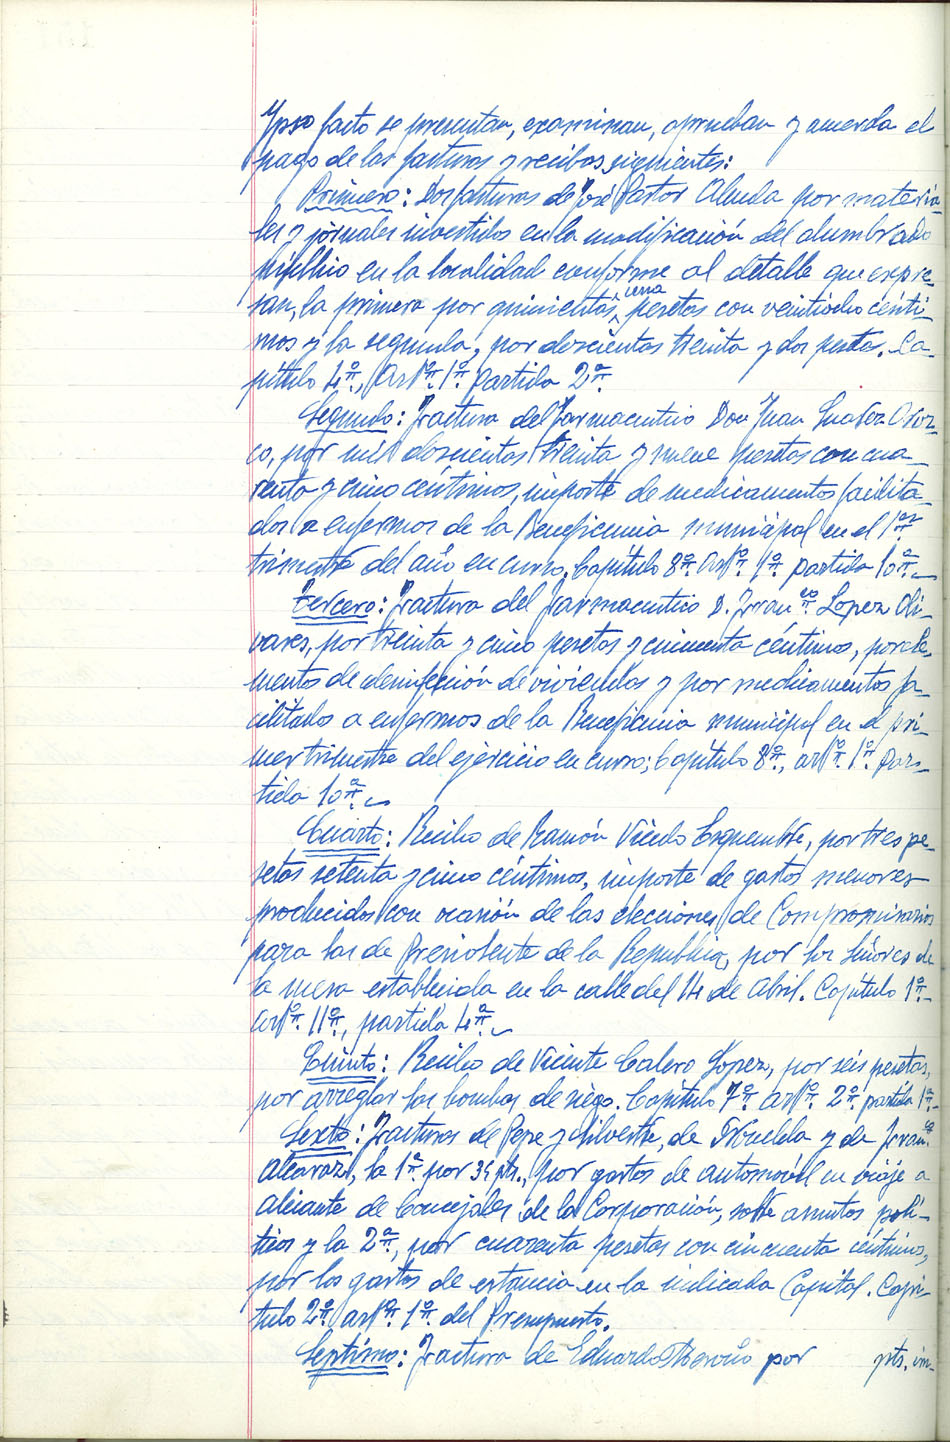 Ypso facto se presentan, examinan, aprueban y acuerda el
pago de las facturas y recibos siguientes:
Primero: Dos facturas de José Pastor Aluda por materia-
les y jornales invertidos en la modificación del alumbrado
público en la localidad conforme al detalle que expre-
san, la primera por quinientas, pesetas con veintiocho cénti-
mos y la segunda, por doscientas treinta y dos pesetas. Ca-
pítulo 4º, Artº. 1º. Partida 2ª.
Segundo: Factura del farmaceutico Don Juan Suarez Oroz-
co, por mil doscientas treinta y nueve pesetas con cua-
renta y cinco céntimos, importe de medicamentos facilita-
dos a enfermos de la Beneficencia municipal en el 1er
trimestre del año en curso. Capítulo 8º. Artº. 1º. partida 10ª.
Tercero: Factura del farmaceutico D. Franco. Lopez Oli-
vares, por treinta y cinco pesetas y cincuenta céntimos, por ele-
mentos de desinfección de viviendas y por medicamentos fa-
cilitados a enfermos de la Beneficencia municipal en el pri-
mer trimestre del ejercicio en curso; Capítulo 8º, artº. 1º. Par-
tida 10ª.
Cuarto: Recibo de Ramón Vicedo Esquembre, por tres pe-
setas setenta y cinco céntimos, importe de gastos menores
producidos con ocasión de las elecciones de Compromisarios
para las de Presidente de la Republica, por los Señores de
la mesa establecida en la calle del 14 de Abril. Capítulo 1º.
Artº. 11º, partida 4ª.
Quinto: Recibo de Vicente Calero López, por seis pesetas,
por arreglar las bombas de riego. Capítulo 7º. Artº. 2º. partida 1ª.
Sexto: Facturas de Pepe y Silvestre, de Novelda y de Franco.
Alcaraz, la 1ª. por 35 pts., por gastos de automóvil en viaje a
Alicante de Concejales de la Corporación, sobre asuntos polí-
ticos y la 2ª, por cuarenta pesetas con cincuenta céntimos,
por los gastos de estancia en la indicada Capital. Capí-
tulo 2º. artº. 1º. del Presupuesto.
Septimo: Factura de Eduardo Meroño por pts. im-